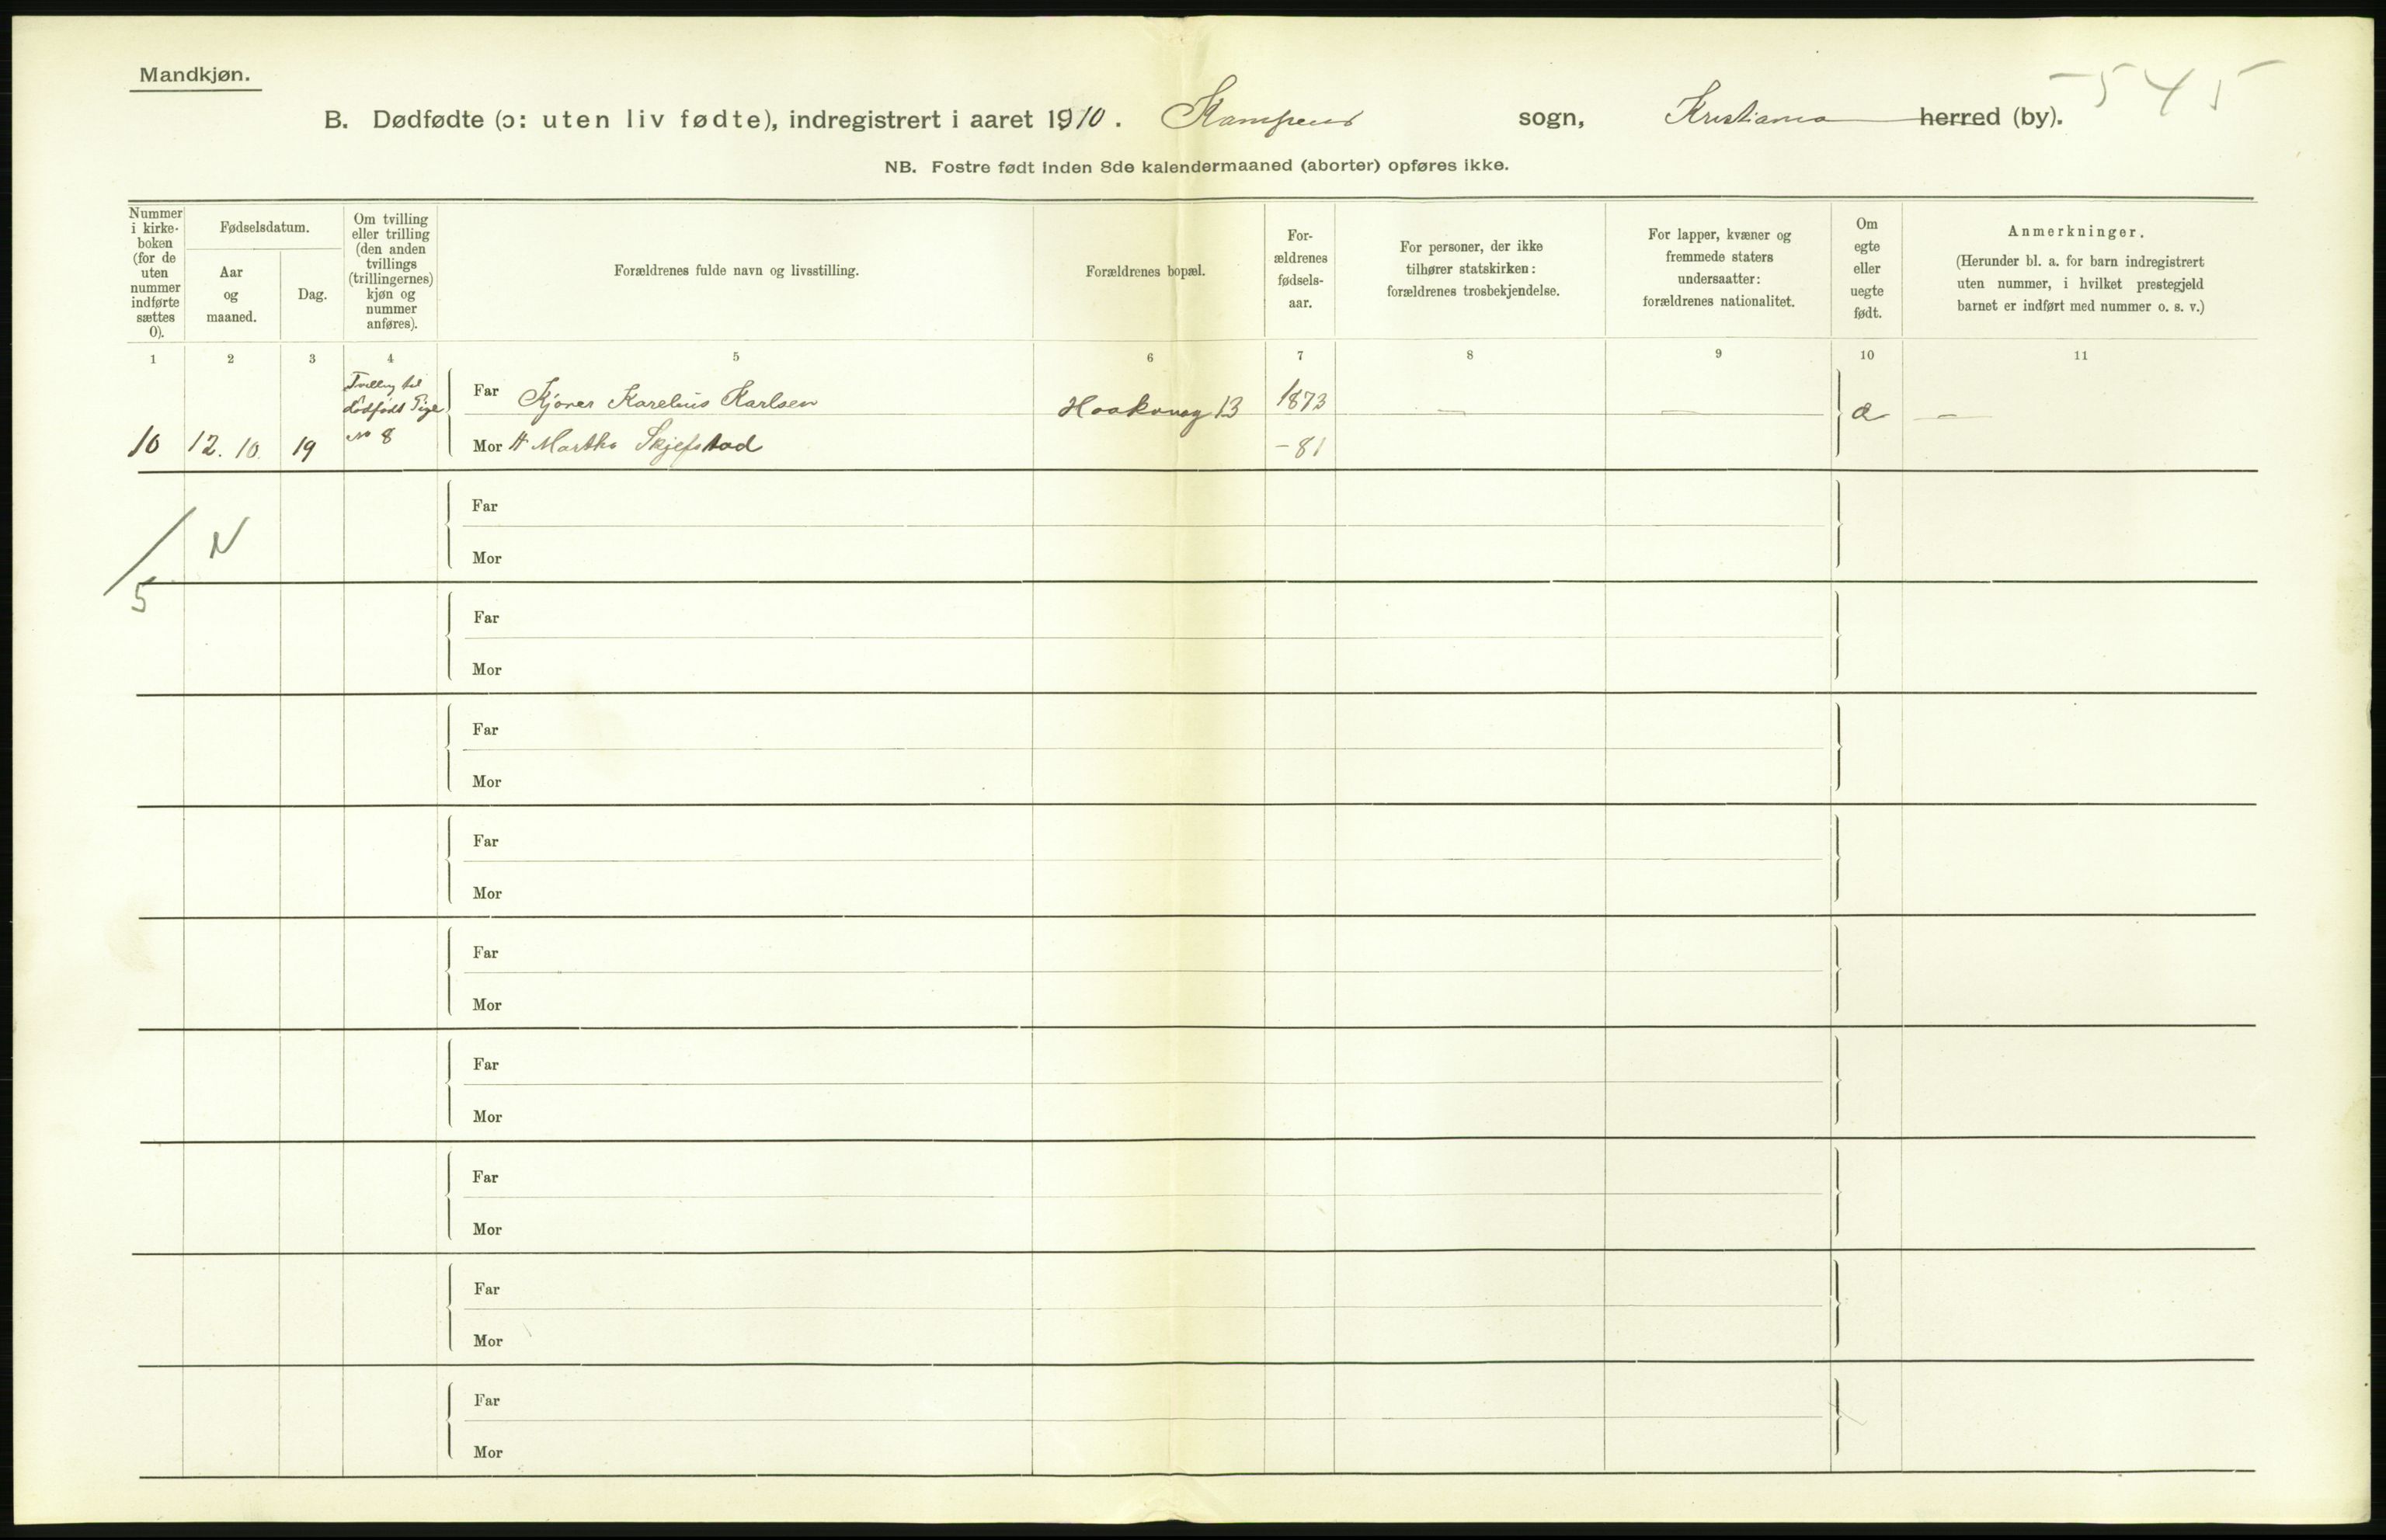 Mandkjøn.
545
B. Dødfødte (ɔ: uten liv fødte), indregistrert i aaret 1910. Kampens sogn, Kristiania herred (by).
NB. Fostre født inden 8de kalendermaaned (aborter) opføres ikke.
Nummer
i kirke-
boken
(for de
uten
nummer
indførte
sættes
0).
Fødselsdatum.
Aar
og
maaned.
Dag.
Om tvilling
eller trilling
(den anden
tvillings
(trillingernes)
kjøn og
nummer
anføres).
Forældrenes fulde navn og livsstilling.
Forældrenes bopæl.
For-
ældrenes
fødsels-
aar.
For personer, der ikke
tilhører statskirken:
forældrenes trosbekjendelse.
For lapper, kvæner og
fremmede staters
undersaatter:
forældrenes nationalitet.
Om
egte
eller
uegte
født.
Anmerkninger.
(Herunder bl. a. for barn indregistrert
uten nummer, i hvilket prestegjeld
barnet er indført med nummer o. s. v.)
1 2 3 4 5 6 7 8 9 10 11
Tvilling til
dødfødt Pige
No 8
10 12. 10. 19
Far Kjører Karelius Karlsen Haakonsg 13 1873 — — —
Mor H Martha Skjefstad -81
N
5
Far
Mor
Far
Mor
Far
Mor
Far
Mor
Far
Mor
Far
Mor
Far
Mor
Far
Mor
Far
Mor